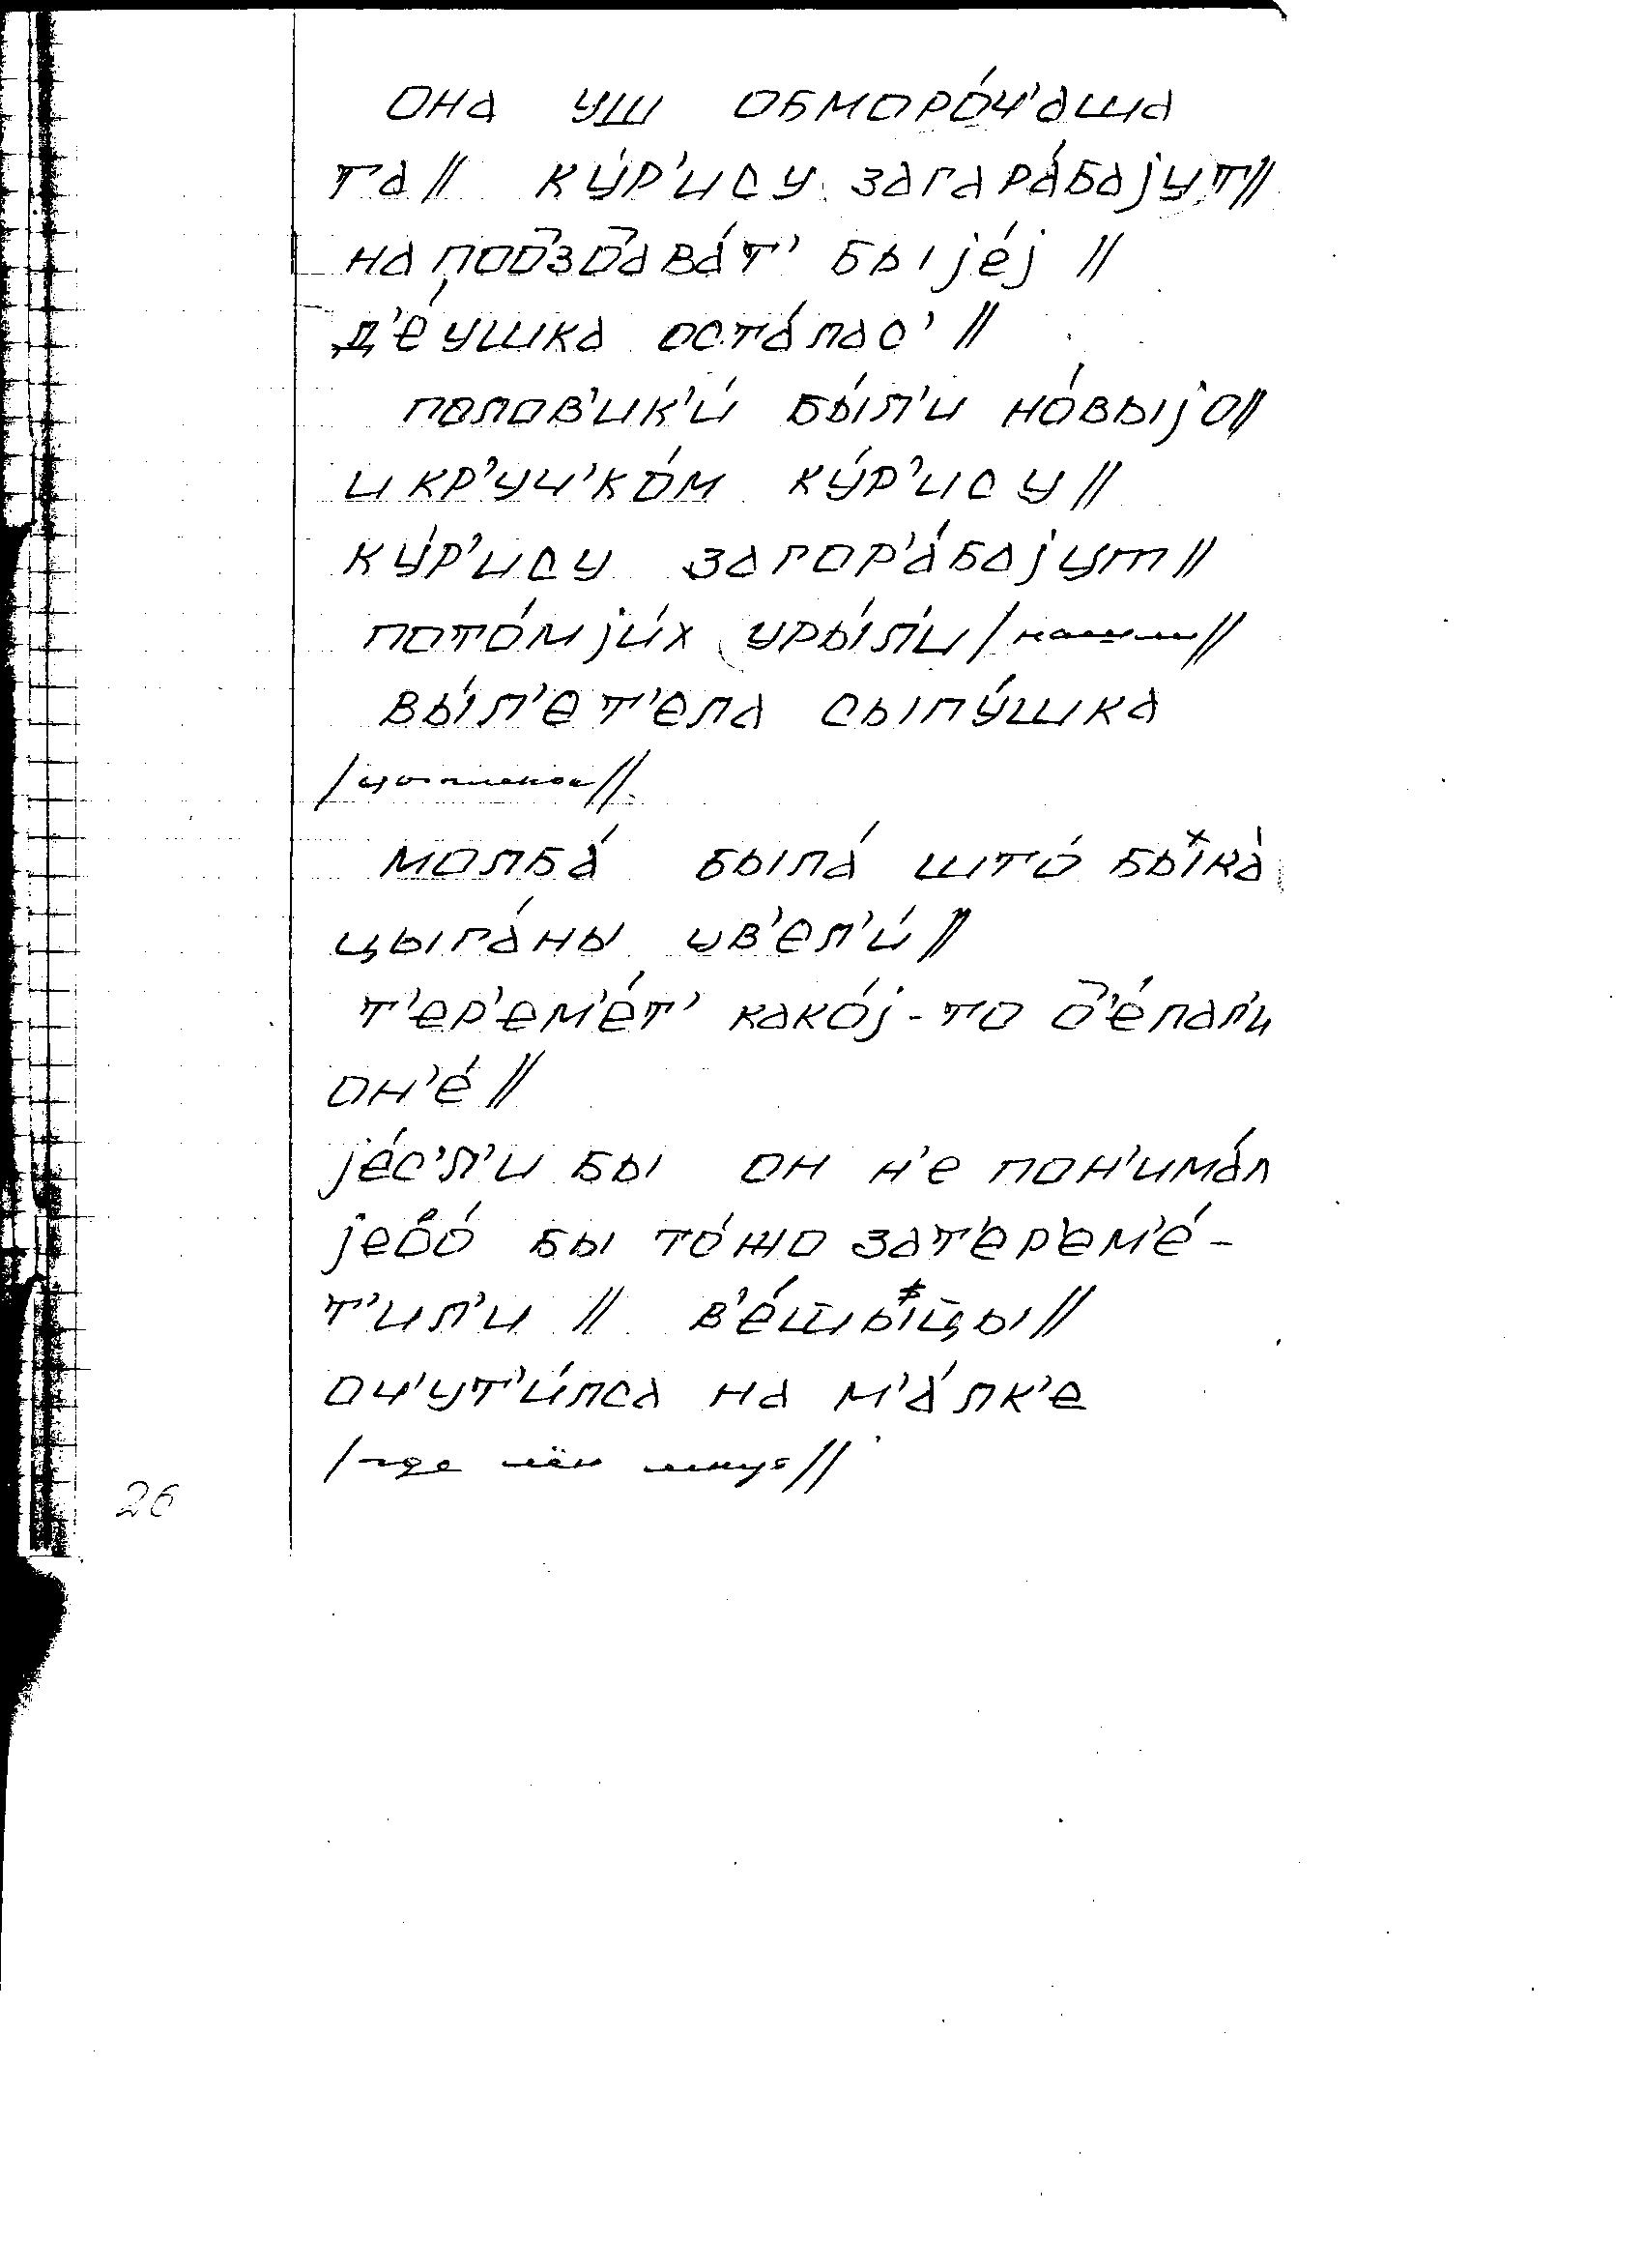 она уш обморо́ч'аша
та// ку́р'ису загара́баjут//
на подздава́т' бы jе́j //
д'е́ушка оста́лас' //
половик'и́ бы́л'и но́выjо//
и кр'уч'ко́м ку́р'ису //
ку́р'ису загор'а́баjут //
пото́м jи́х уры́л'и / нашли //
вы́л'ет'ела сыпу́шка
/цыпленок//
молба́ была́ што́ быка́
цыга́ны ув'ел'и́ //
т'ер'ем'е́т' како́j-то д'е́лал'и
он'е́ //
jе́с'л'и бы он н'е пон'има́л
jево́ бы то́жо зат'ер'ем'е́-
т'ил'и // в'е́шыцы //
оч'ут'и́лса на м'а́лк'е
/где лён мнут//
26